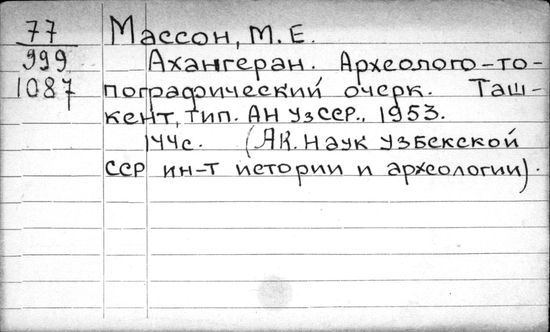 77 Массон, М. Е.
999 Ахангеран. Археолого-то-
1087 пографический очерк. Таш-
кент, тип. АН УзССР., 1953.
144с. (Ак. Наук Узбекской
ССР ин-т истории и археологии).